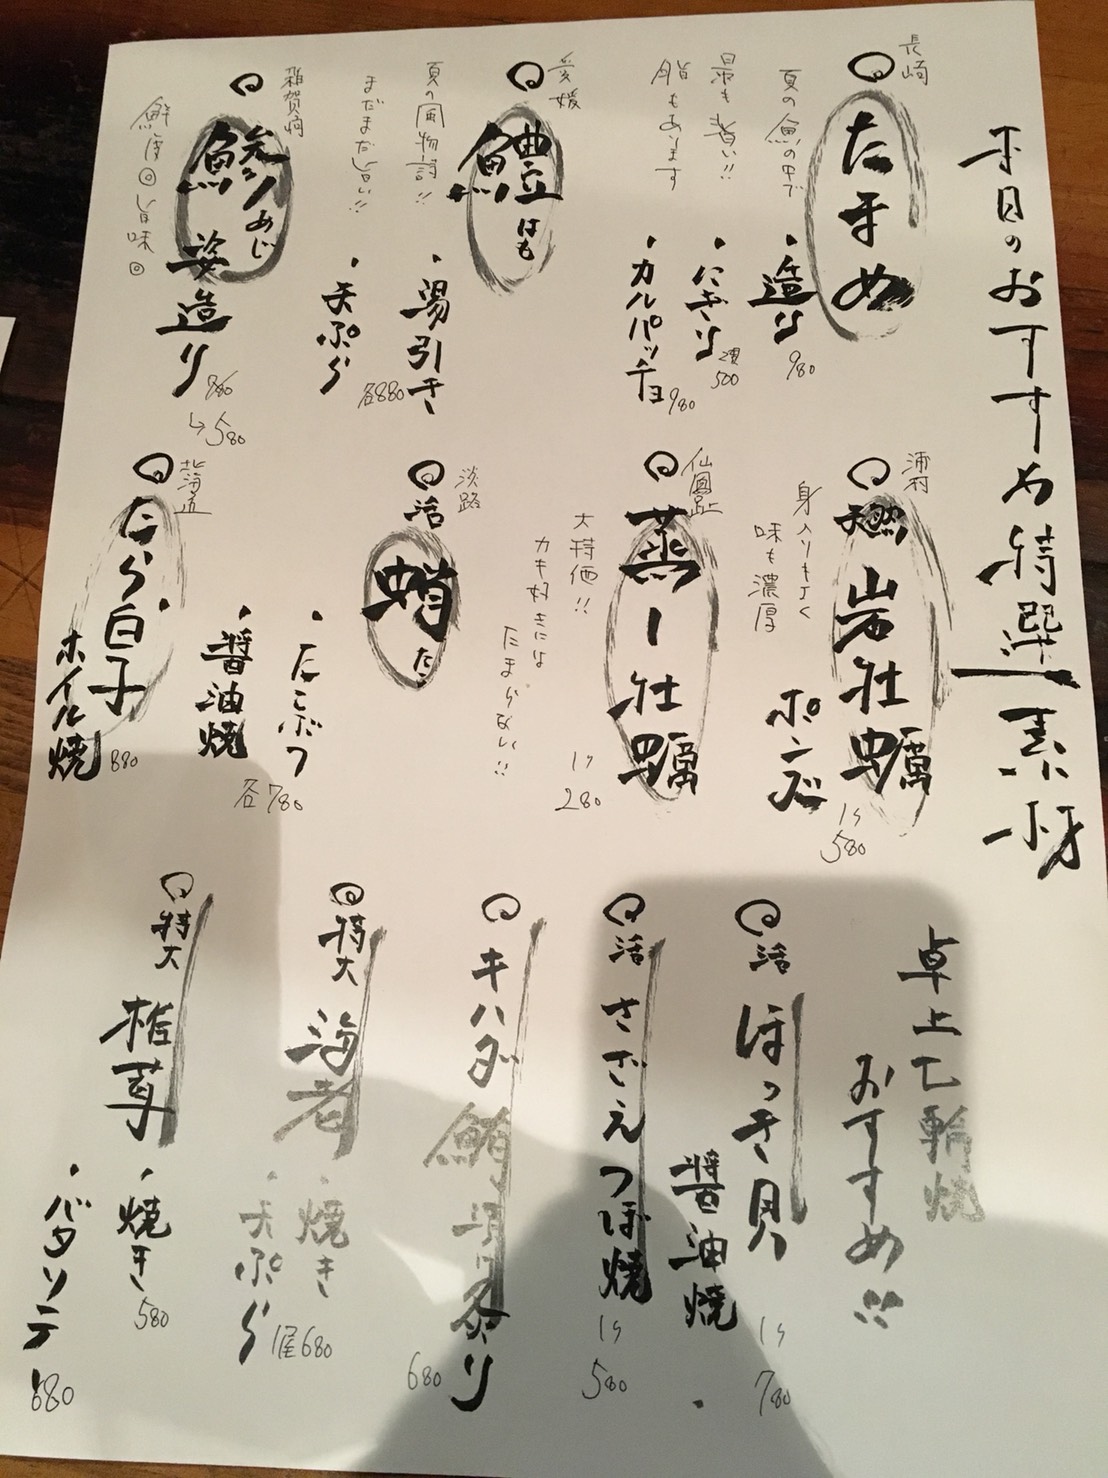 本日のおすすめ特選素材
長崎
たまめ
夏の魚の中で
最も旨い!!
脂もあります
・造り 980
・にぎり 2貫 500
・カルパッチョ 980
愛媛
鱧 はも
夏の風物詩!!
まだまだ旨い!!
・湯引き
・天ぷら 各880
雑賀崎
鰺 あじ 姿造り 780 → 580
鮮度◎旨味◎
浦村
天然岩牡蠣 ポンズ 1ヶ 580
身入りもよく
味も濃厚
仙鳳趾
蒸し牡蠣 1ヶ 280
大特価!!
カキ好きには
たまらない!!
淡路
活 蛸 たこ
・たこぶつ
・醤油焼 各780
北海道
たら白子
ホイル焼 880
卓上七輪焼
おすすめ!!
活 ほっき貝 醤油焼 1ケ 780
活 さざえつぼ焼 1ケ 580
キハダ鮪 炙り 680
特大 海老
・焼き
・天ぷら 680
特大 椎茸
・焼き 580
・バタソテー 680